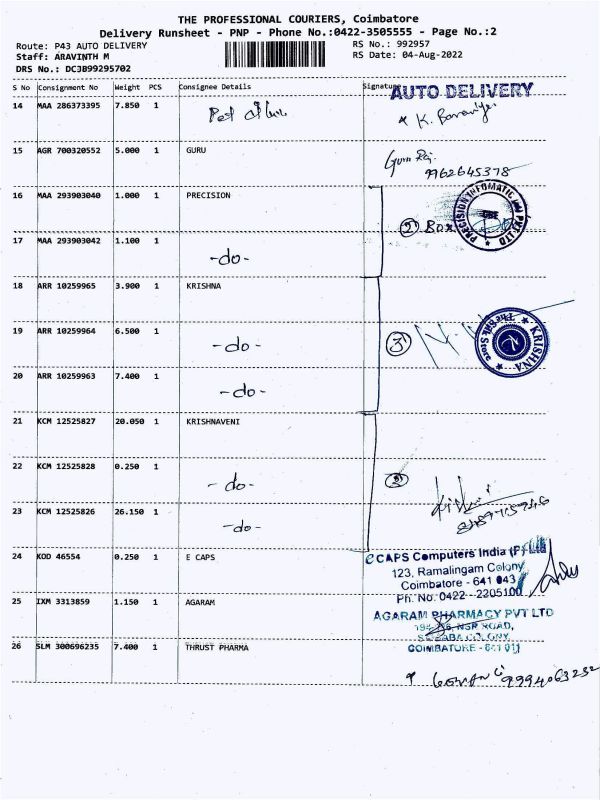 THE PROFESSIONAL COURIERS, Coimbatore
Delivery Runsheet - PNP - Phone No.:0422-3505555 - Page No.:2
Route: P43 AUTO DELIVERY
RS No.: 992957
Staff: ARAVINTH M
RS Date: 04-Aug-2022
DRS No.: DCJB99295702
S No Consignment No Weight PCS Consignee Details Signature
AUTO DELIVERY
14 MAA 286373395 7.850 1
15 AGR 700320552 5.000 1 GURU
9962645378
16 MAA 293903040 1.000 1 PRECISION
2 Box
PRECISION INFOMATIC (M) PVT LTD
CBE
17 MAA 293903042 1.100 1 -do-
18 ARR 10259965 3.900 1 KRISHNA
KRISHNA
The Silk Store
19 ARR 10259964 6.500 1 -do- 3
20 ARR 10259963 7.400 1 -do-
21 KCM 12525827 20.050 1 KRISHNAVENI
22 KCM 12525828 0.250 1 -do-
23 KCM 12525826 26.150 1 -do-
24 KOD 46554 0.250 1 E CAPS
e CAPS Computers India (P) Ltd
123, Ramalingam Colony
Coimbatore - 641 043
Ph. No. 0422 - 2205100
25 IXM 3313859 1.150 1 AGARAM
AGARAM PHARMACY PVT LTD
NSR ROAD,
COIMBATORE - 641 011
26 SLM 300696235 7.400 1 THRUST PHARMA
9994063232